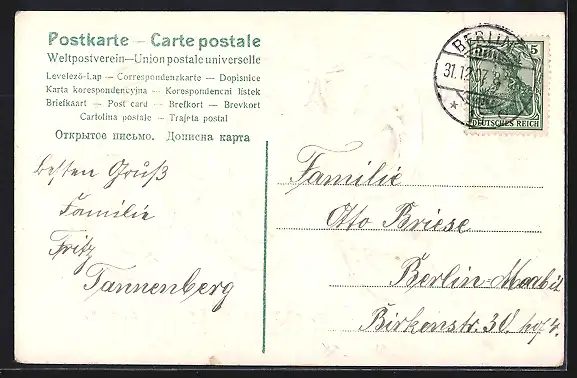 Postkarte – Carte postale
Weltpostverein—Union postale universelle
Levelező-Lap — Correspondenzkarte — Dopisnice
Karta korespondencyjna — Korespondencni lístek
Briefkaart — Post card — Brefkort — Brevkort
Cartolina postale — Trajeta postal
Открытое письмо. Дописна карта
besten Gruß
Familie
Fritz
Tannenberg
BERLIN
31.12.07
5
DEUTSCHES REICH
Familie
Otto Briese
Berlin-Moabit
Birkenstr. 30. hof